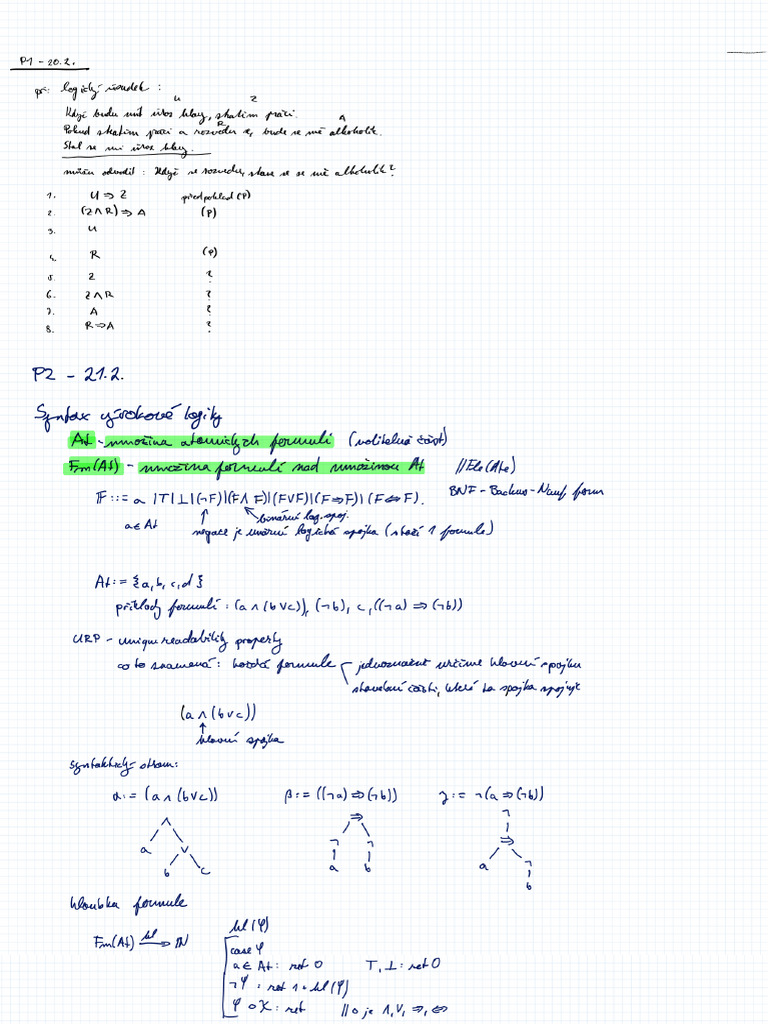 P1 - 20.2.
př: logický úsudek :
U Z
Když budu mít úraz hlavy, ztratím práci.
R A
Pokud ztratím práci a rozvedu se, bude ze mě alkoholik.
Stal se mi úraz hlavy.
můžu odvodit : Když se rozvedu, stane se ze mě alkoholik?
1. U ⇒ Z předpoklad (P)
2. (Z ∧ R) ⇒ A (P)
3. U
4. R (P)
5. Z ?
6. Z ∧ R ?
7. A ?
8. R ⇒ A ?
P2 - 21.2.
Syntax výrokové logiky
At - množina atomických formulí (volitelná část)
Fm(At) - množina formulí nad množinou At //Ele(Ate)
F ::= a |⊤|⊥|(¬F)|(F∧F)|(F∨F)|(F⇒F)|(F⇔F). BNF - Backus-Naur form
a ∈ At binární log. spoj.
negace je unární logická spojka (stačí 1 formule)
At := {a, b, c, d}
příklady formulí : (a ∧ (b ∨ c)), (¬b), c, ((¬a) ⇒ (¬b))
URP - unique readability property
co to znamená : každá formule jednoznačně určíme hlavní spojku
stavební části, které ta spojka spojuje
(a ∧ (b ∨ c))
hlavní spojka
Syntaktický strom:
α := (a ∧ (b ∨ c)) β := ((¬a) ⇒ (¬b)) γ := ¬(a ⇒ (¬b))
∧ ⇒ ¬
a ∨ ¬ ¬ ⇒
b c a b a ¬
b
hloubka formule
hl(φ)
Fm(At) hl → ℕ
case φ
a ∈ At : ret 0 ⊤, ⊥ : ret 0
¬ψ : ret 1 + hl(ψ)
ψ ∘ χ : ret //∘ je ∧, ∨, ⇒, ⇔